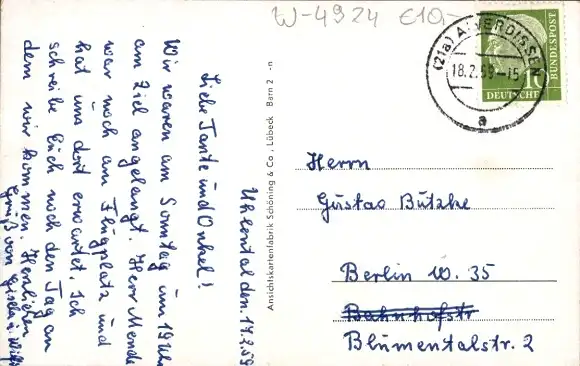 W-4924 €10,-
(21a) ALVERDISSEN
18.2.59-15
a
DEUTSCHE
BUNDESPOST
10
Uhlental den 17.2.59
Liebe Tante und Onkel!
Wir waren am Sonntag um 19 Uhr
am Ziel angelangt. Herr Mende
war noch am Flugplatz und
hat uns dort erwartet. Ich
schreibe Euch noch den Tag an
dem wir kommen. Herzlichen
Gruß von Gisela u. Willi
Ansichtskartenfabrik Schöning & Co., Lübeck Barn 2 -n
Herrn
Gustav Bützke
Berlin W. 35
Bahnhofstr
Blumentalstr. 2